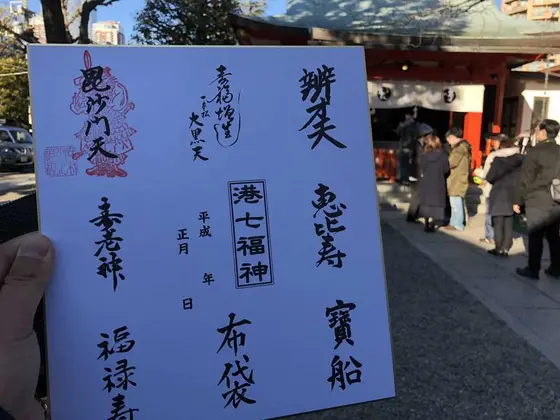 辨才天
恵比寿
寶船
福増進
大黒天
港七福神
平成 年
正月 日
布袋
毘沙門天
寿老神
福禄寿